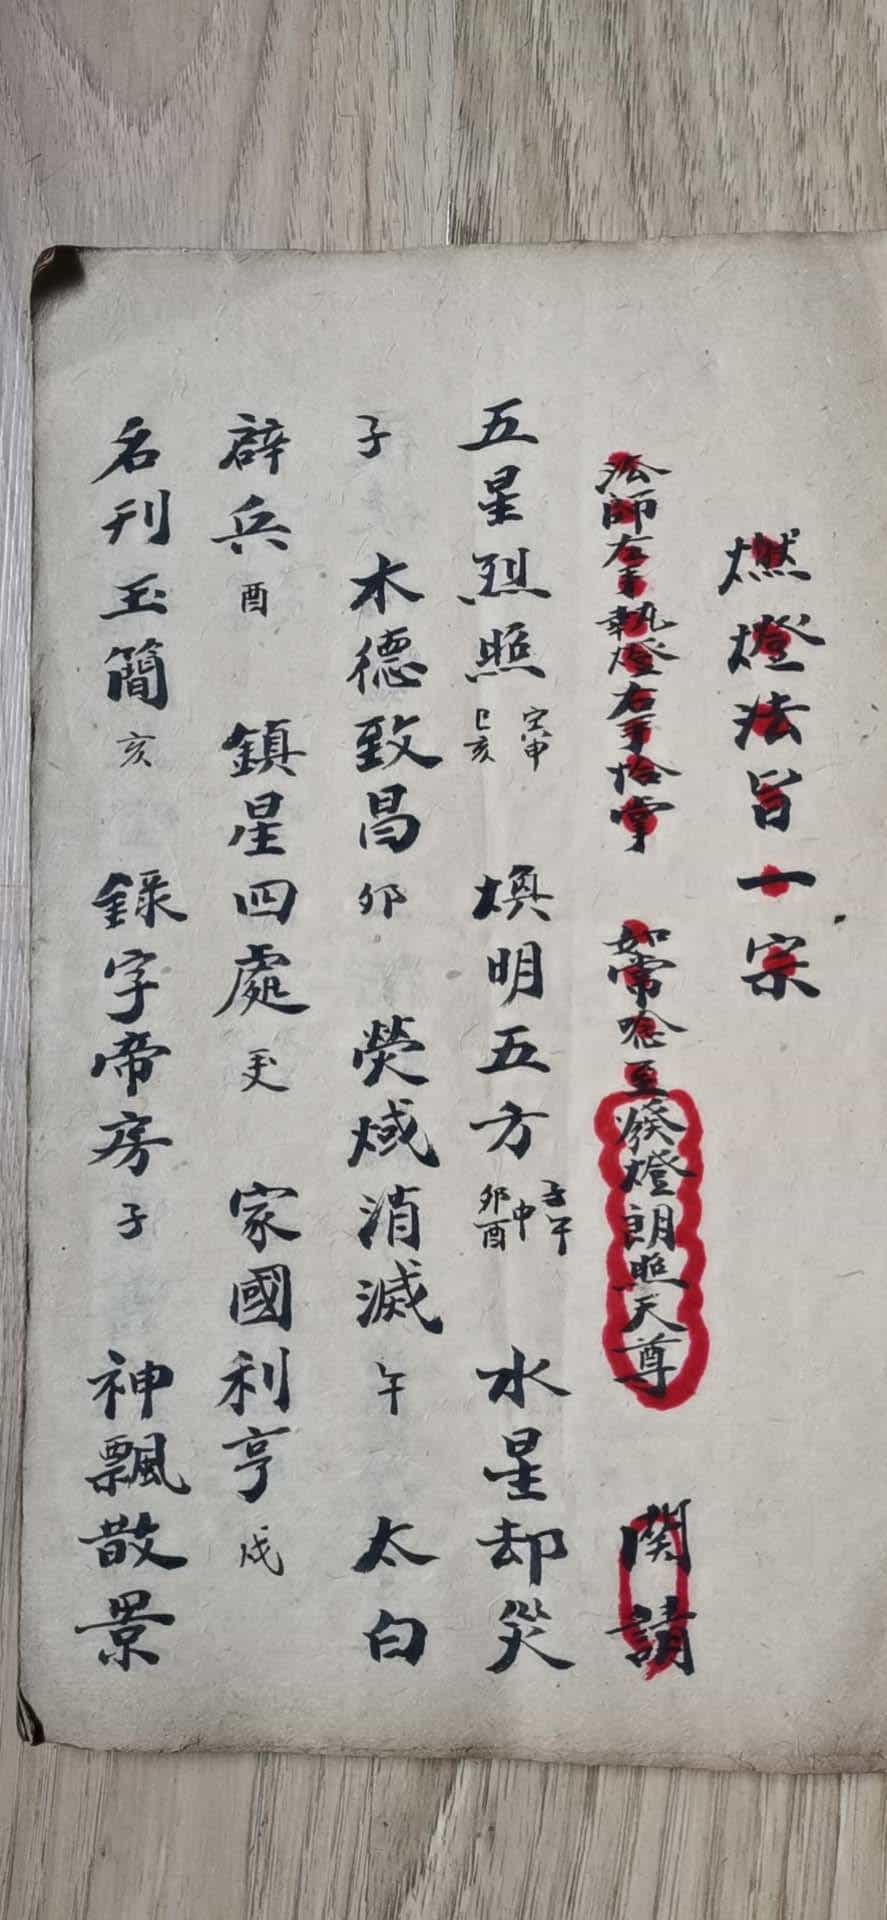 燃燈法旨一宗
法師左手執燈右手恰掌 如常唸至發燈朗照天尊 関請
五星烈照 寅申巳亥 煥明五方 子午中卯酉 水星却災
子 木德致昌 卯 熒惑消滅 午 太白
辟兵 酉 鎮星四處 家國利亨 戌
名刊玉簡 亥 錄字帝房 子 神飄散景